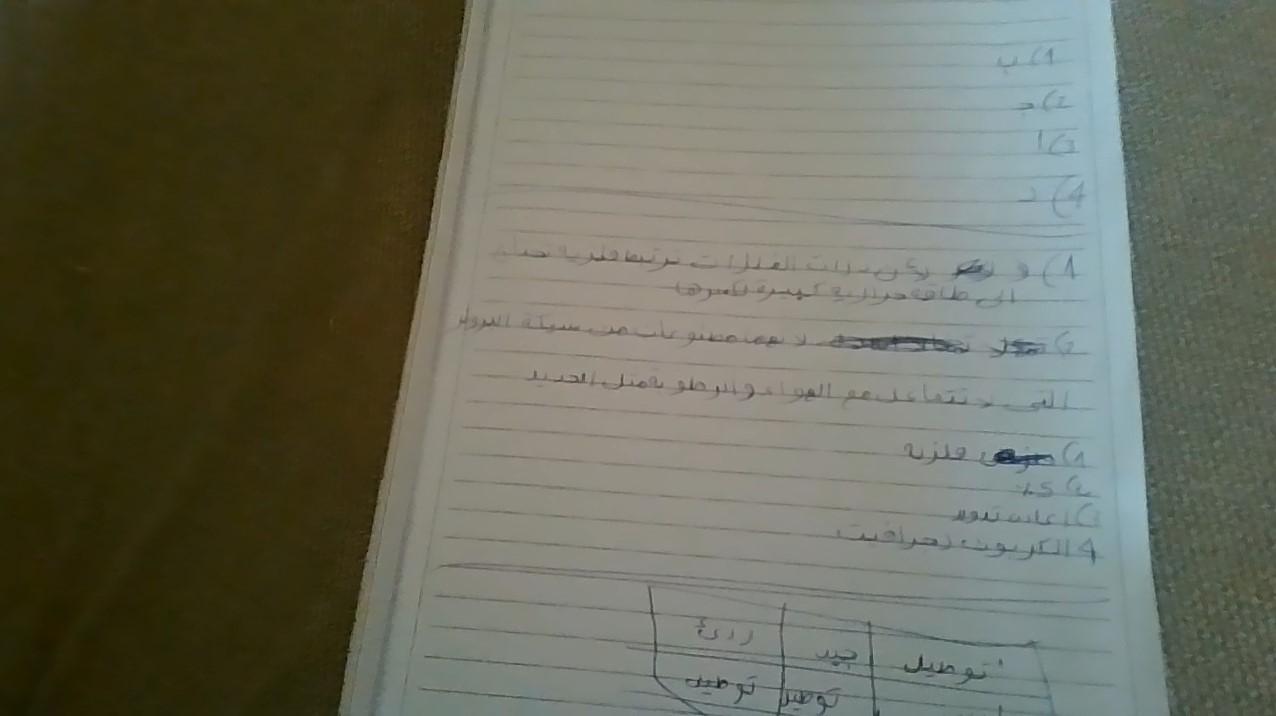 1) ب
2) ج
3) أ
4) د
1) و لكن ذرات الفلزات ترتبط فلزية تحتاج
الى طاقة حرارية كبيرة لكسرها
2) لا نها مصنوعات من سبيكة البرونز
التي لا تتفاعل مع الهواء والرطوبة مثل الحديد
1) فلزية
2)
3) اعادة تدوير
4 الكربون
توصيل جيد ردئ
توصيل توصيل